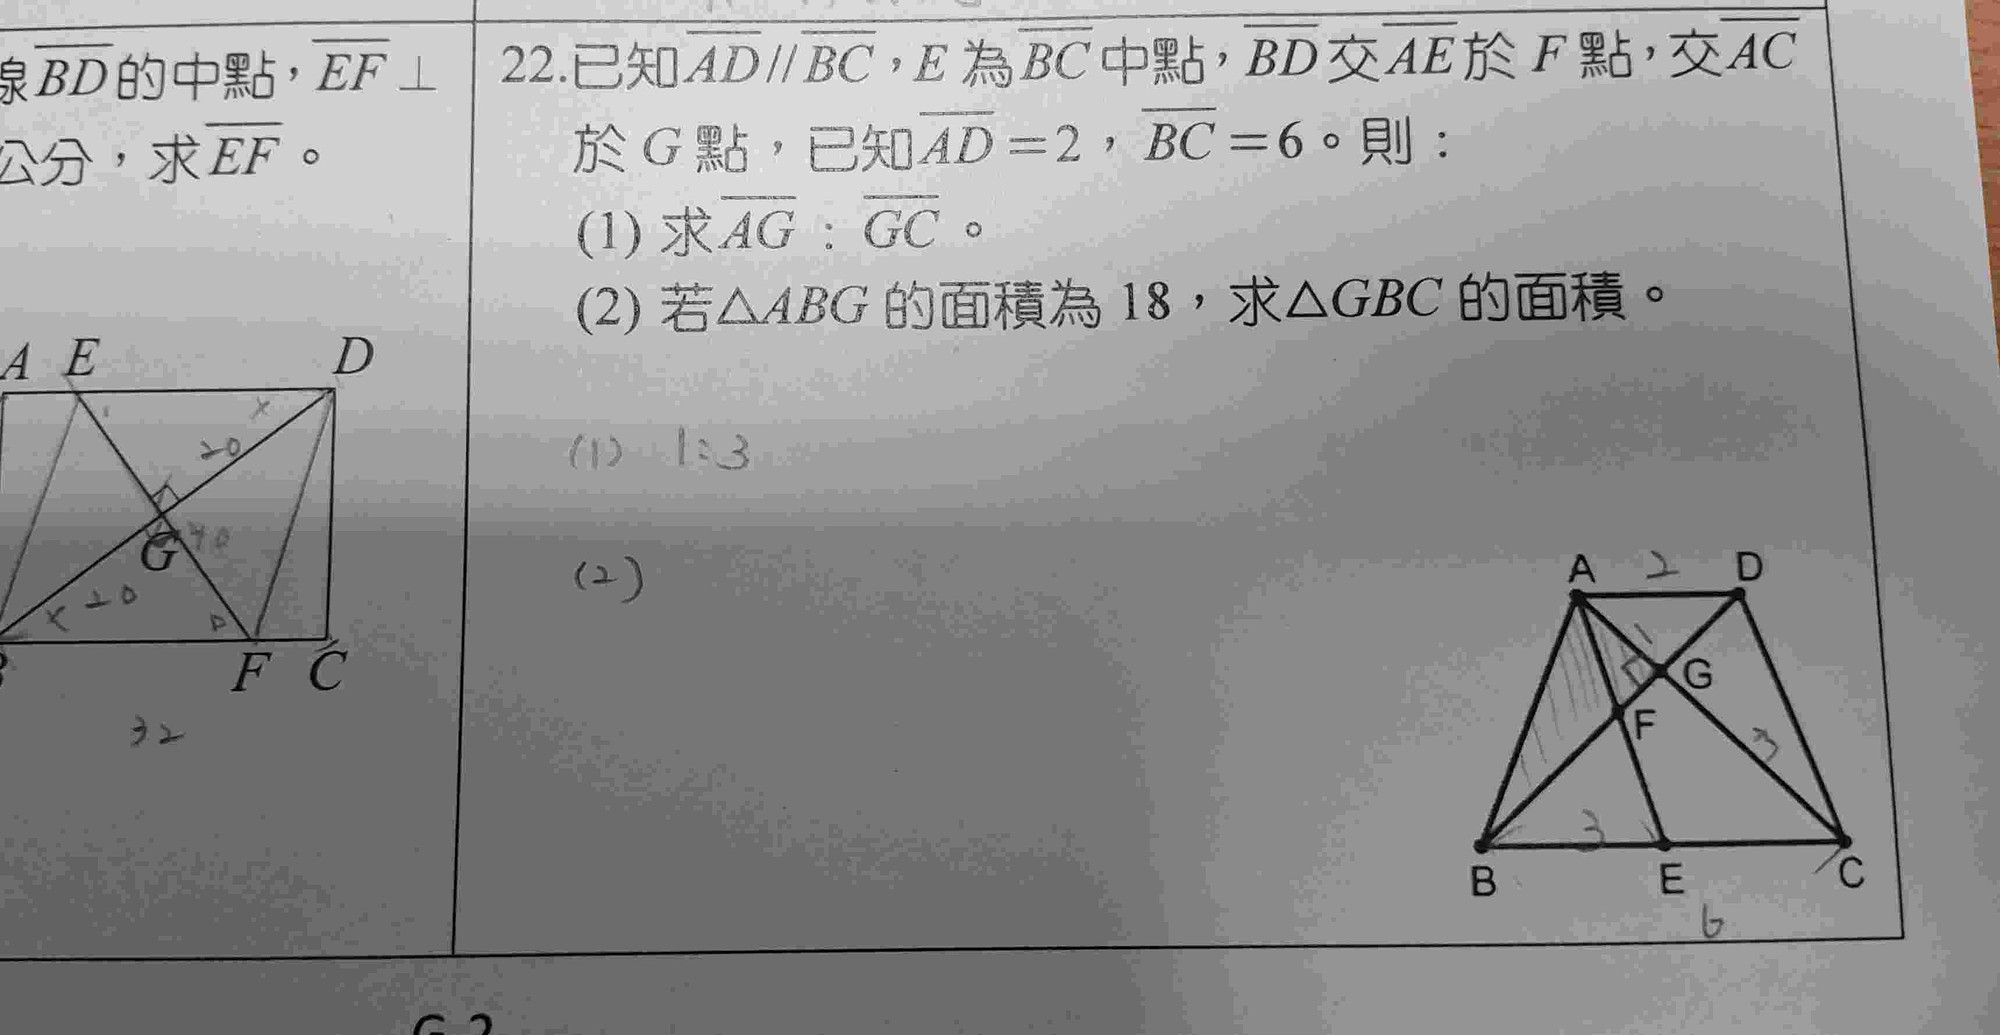 線BD的中點，EF⊥
公分，求EF。
A E D
x
20
G 40
x 20
F C
32
22.已知AD//BC，E 為BC中點，BD交AE於 F 點，交AC
於 G 點，已知AD=2，BC=6。則：
(1) 求AG：GC。
(2) 若△ABG 的面積為 18，求△GBC 的面積。
(1) 1:3
(2)
A 2 D
G
F
3
3
B E C
6